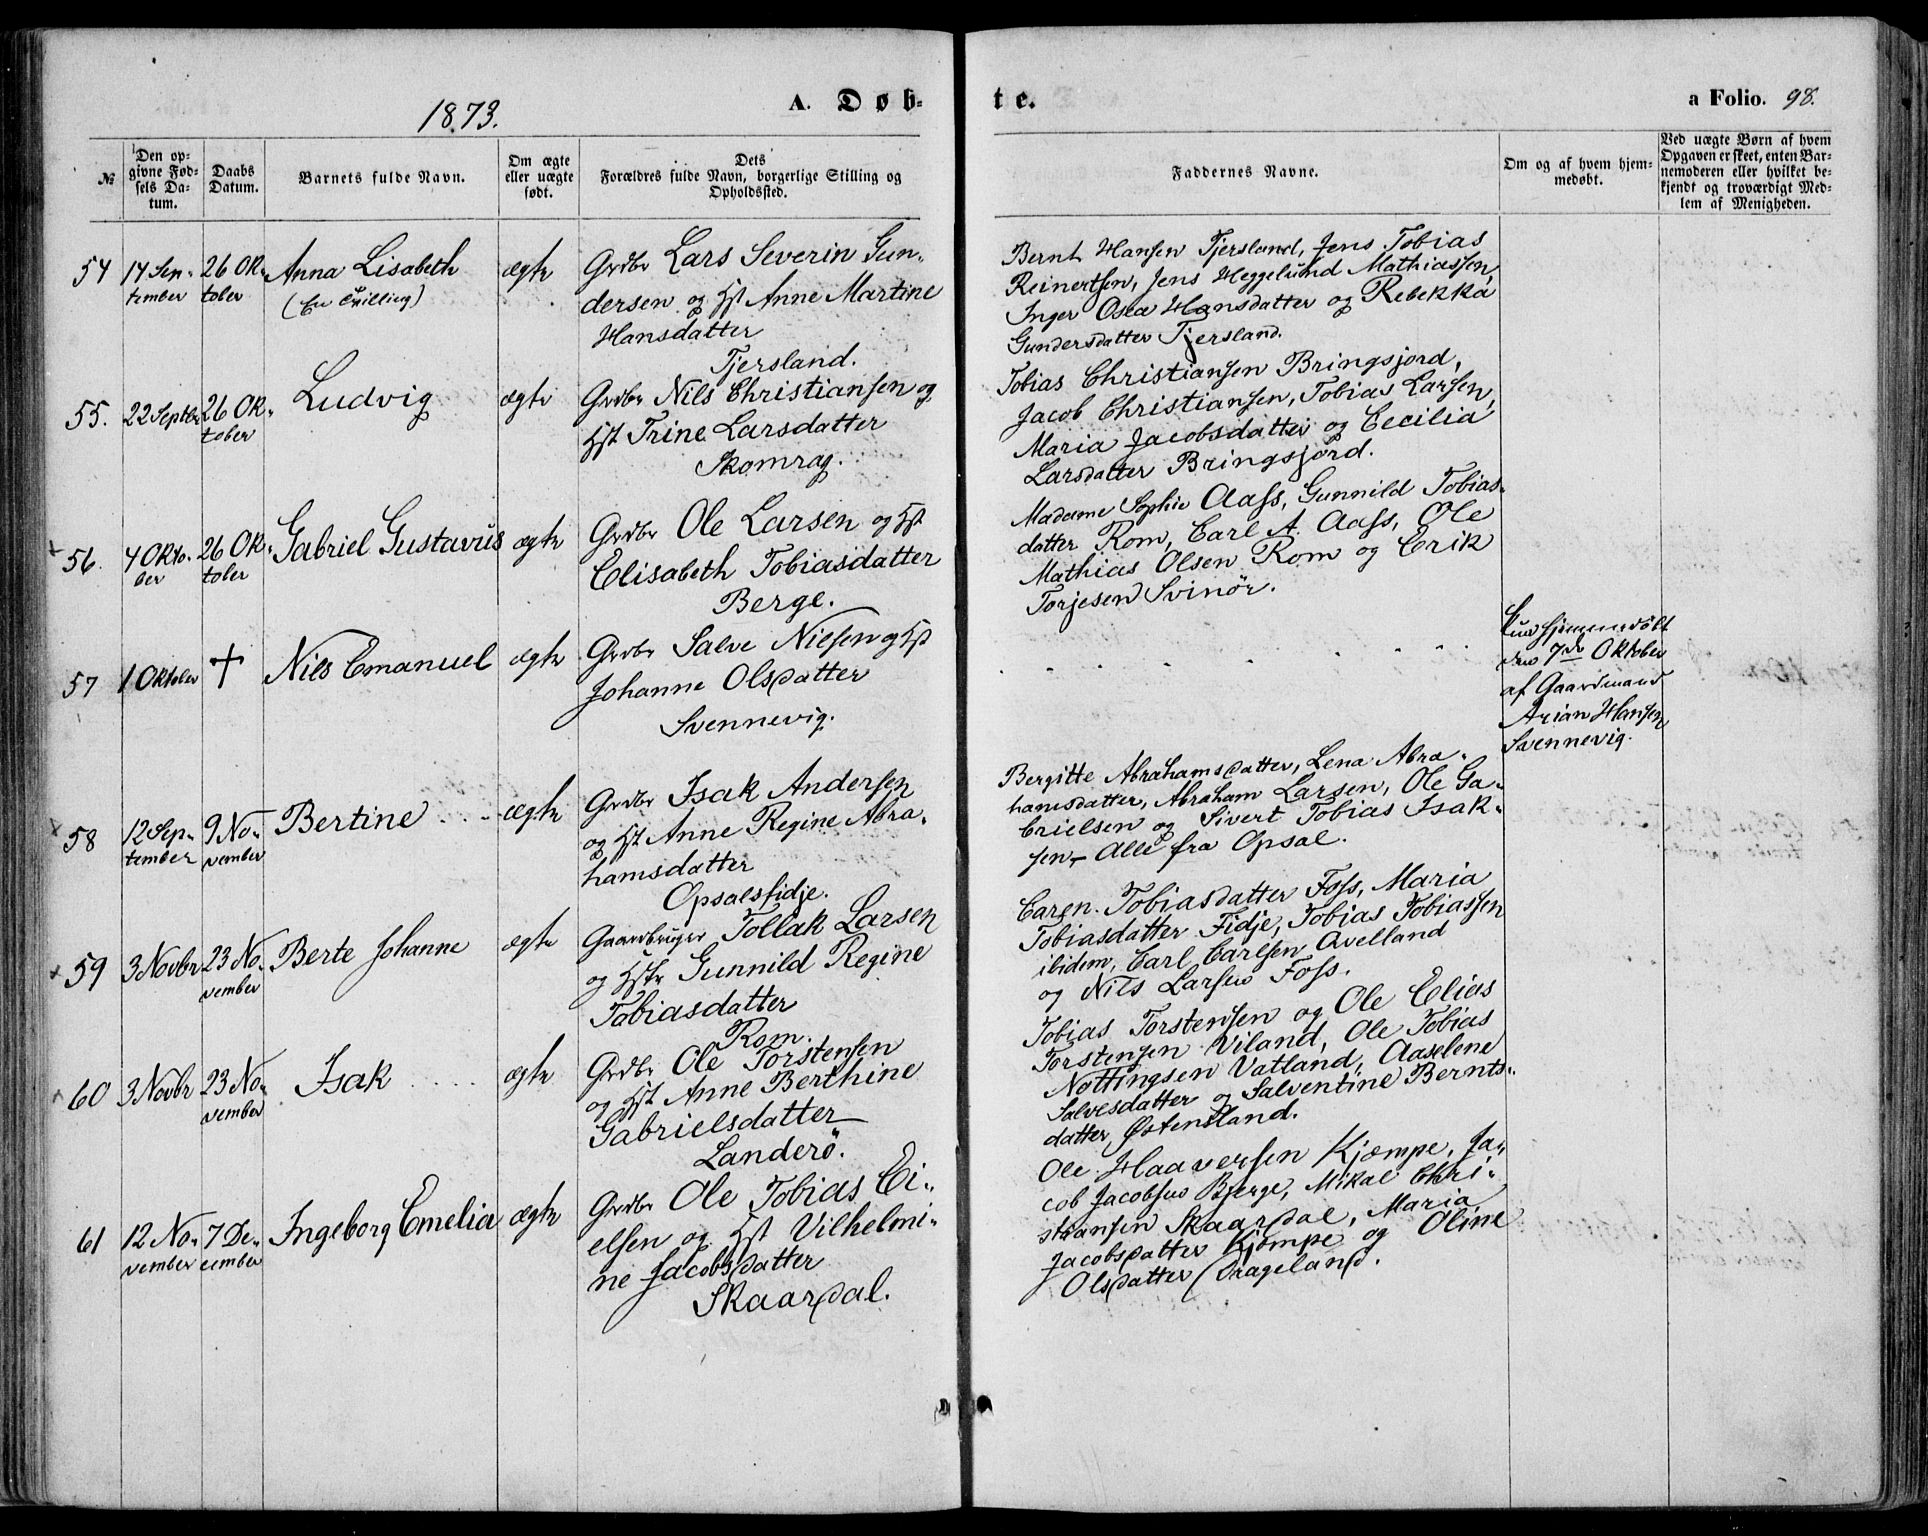 1873.
A. Døb-
te.
a Folio. 98.
№
Den op-
givne Fød-
sels Da-
tum.
Daabs
Datum.
Barnets fulde Navn.
Om ægte
eller uægte
født.
Dets
Forældres fulde Navn, borgerlige Stilling og
Opholdssted.
Faddernes Navne.
Om og af hvem hjem-
medøbt.
Ved uægte Børn af hvem
Opgaven er skeet, enten Bar-
nemoderen eller hvilket be-
kjendt og troværdigt Med-
lem af Menigheden.
54
14 Sep-
tember
26 Ok-
tober
Anna Lisabeth
(En Tvilling)
ægte
Grdbr Lars Severin Gun-
dersen og Hst Anne Martine
Hansdatter
Tjersland.
Bernt Hansen Tjersland, Jens Tobias
Reinertsen, Jens Heggelund Mathiassen,
Inger Osea Hansdatter og Rebekka
Gundersdatter Tjersland.
55.
22 Septbr
26 Ok-
tober
Ludvig
ægte
Grdbr Nils Christiansen og
Hst Trine Larsdatter
Skomrag.
Tobias Christiansen Bringsjord,
Jacob Christiansen, Tobias Larsen,
Maria Jacobsdatter og Cecilia
Larsdatter Bringsjord.
56.
4 Okto-
ber
26 Ok-
tober
Gabriel Gustavus
ægte
Grdbr Ole Larsen og Hst
Elisabeth Tobiasdatter
Berge.
Madame Sophie Aass, Gunnild Tobias-
datter Rom, Carl A. Aass, Ole
Mathias Olsen Rom og Erik
Torjesen Svinör.
57
1 Oktober
†
Nils Emanuel
ægte
Grdbr Salve Nielsen og Hst
Johanne Olsdatter
Svennevig.
Kun hjemmedöbt
den 7de Oktober
af Gaardmand
Arian Hansen
Svennevig.
58
12 Sep-
tember
9 No-
vember
Bertine
ægte
Grdbr Isak Andersen
og Hst Anne Regine Abra-
hamsdatter
Opsalsfidje.
Bergitte Abrahamsdatter, Lena Abra-
hamsdatter, Abraham Larsen, Ole Ga-
brielsen og Sivert Tobias Isak-
sen, - Alle fra Opsal.
59
3 Novbr
23 No-
vember
Berte Johanne
ægte
Gaardbruger Tollak Larsen
og Hstr Gunnild Regine
Tobiasdatter
Rom.
Caren Tobiasdatter Foss, Maria
Tobiasdatter Fidje, Tobias Tobiassen
ibidem, Carl Carlsen Avelland
og Nils Larsen Foss.
60
3 Novbr
23 No-
vember
Isak
ægte
Grdbr Ole Torstensen
og Hst Anne Berthine
Gabrielsdatter
Landerö.
Tobias Torstensen og Ole Elias
Torstensen Viland, Ole Tobias
Nottingsen Vatland, Aaselene
Salvesdatter og Salventine Bernts-
datter, Østensland.
61
12 No-
vember
7 De-
cember
Ingeborg Emelia
ægte
Grdbr Ole Tobias Ei-
elsen og Hst Vilhelmi-
ne Jacobsdatter
Skaardal.
Ole Haaversen Kjæmpe, Ja-
cob Jacobsen Bjerge, Mikal Chri-
stiansen Skaardal, Maria
Jacobsdatter Kjæmpe og Oline
Olsdatter Drageland.